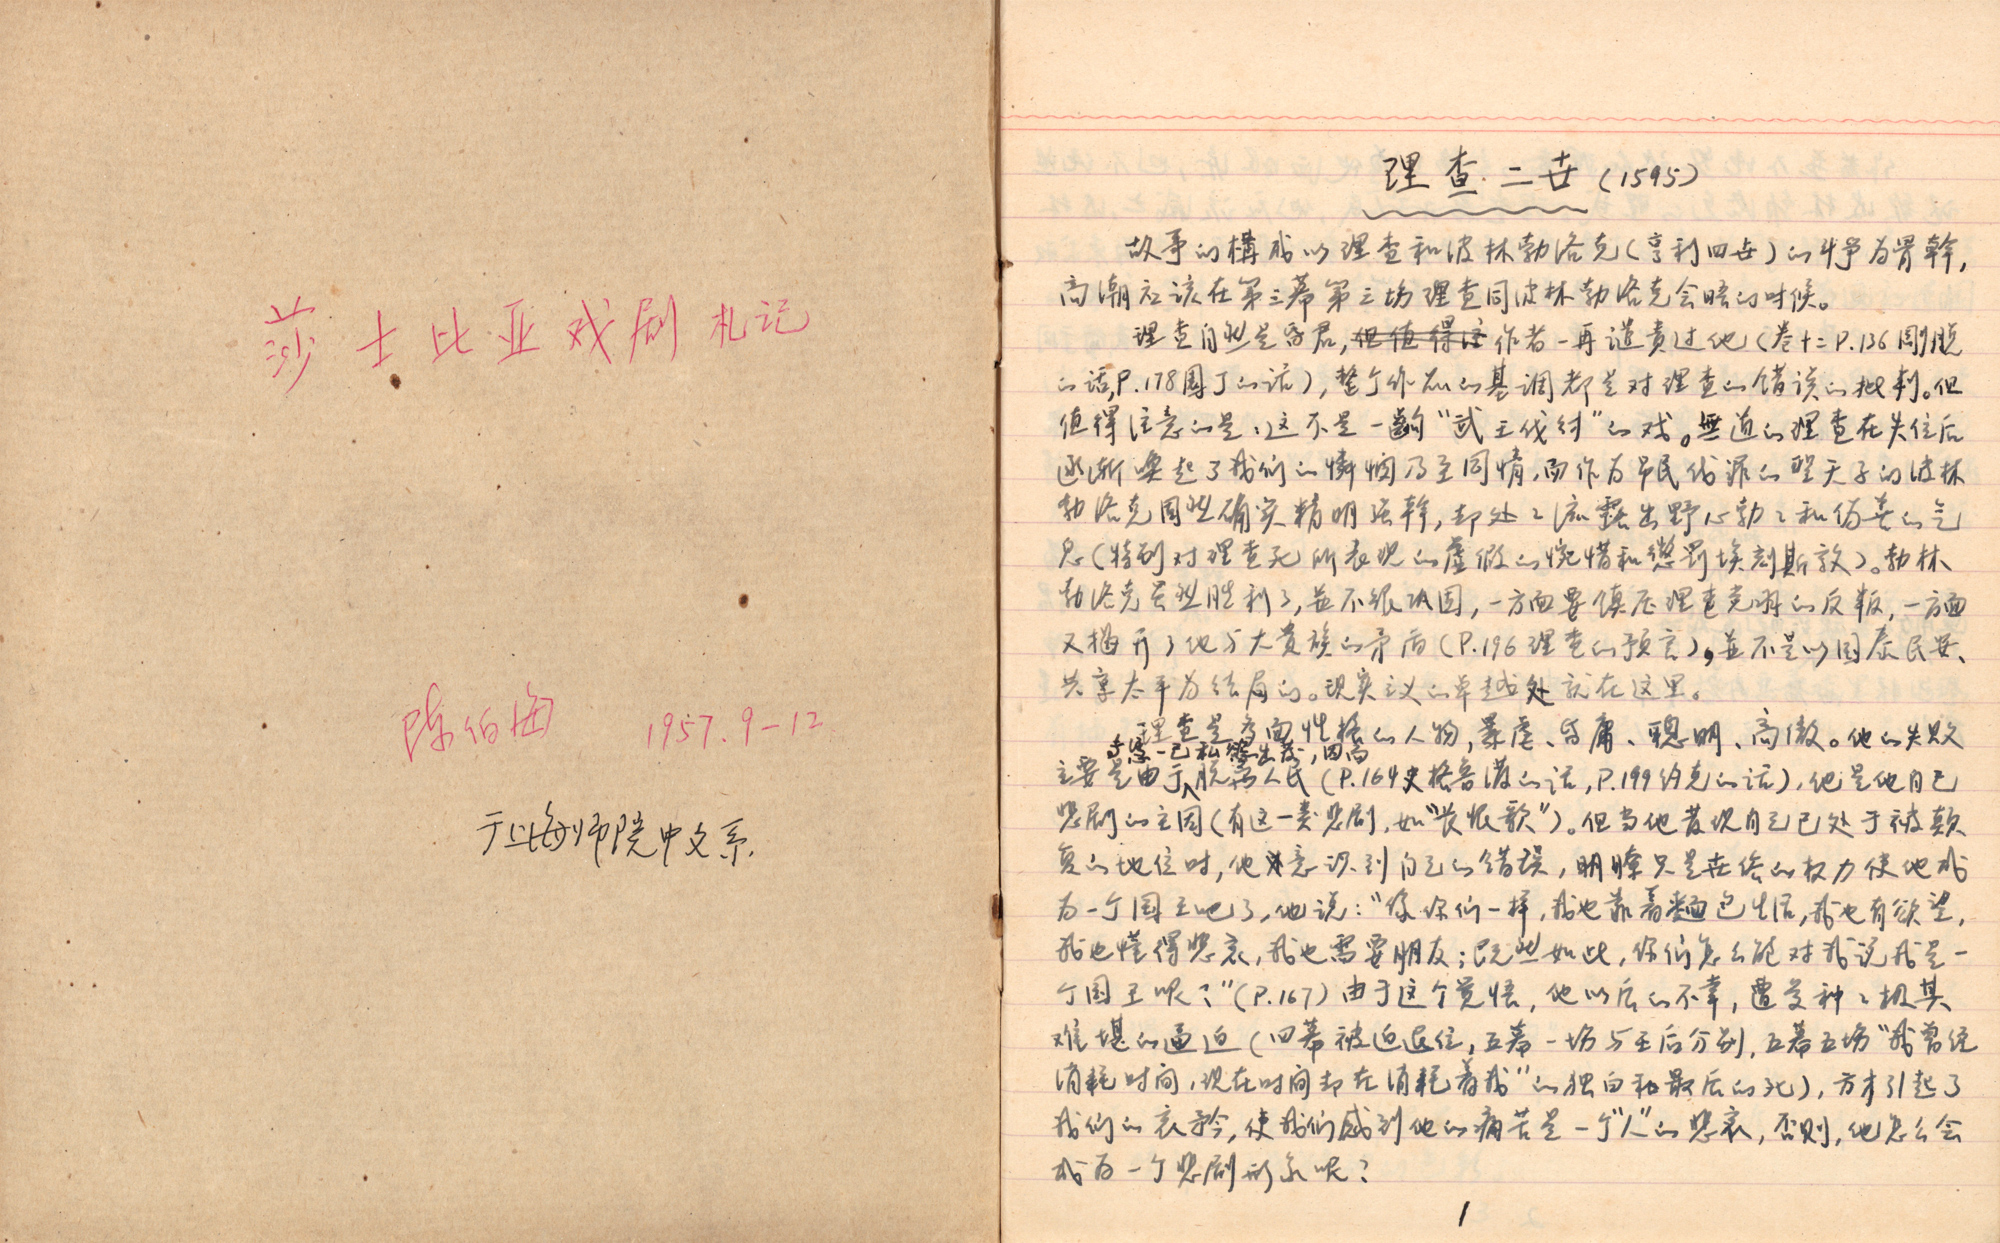 莎士比亚戏剧札记
陈伯海 1957.9—12
于上海师院中文系
理查二世(1595)
故事的構成以理查和波林勃洛克(亨利四世)的斗争为骨幹,
高潮应该在第三幕第三场理查同波林勃洛克会晤的时候。
理查自然是昏君,但值得注作者一再谴责过他(卷十二P.136剛脱
的话,P.178園丁的话),整个作品的基调都是对理查的错误的批判。但
值得注意的是,这不是一齣“武王伐紂”的戏。無道的理查在失位后
逐渐唤起了我们的憐悯乃至同情,而作为吊民伐罪的聖天子的波林
勃洛克固然确实精明强幹,却处々流露出野心勃々和伪善的气
息(特别对理查死所表现的虚假的惋惜和懲罰埃克斯敦)。勃林
勃洛克虽然胜利了,並不很巩固,一方面要镇压理查党羽的反叛,一方面
又揭开了他与大贵族的矛盾(P.196理查的预言),並不是以国泰民安、
共享太平为结局的。现实主义的卓越处就在这里。
理查是多面性格的人物,暴虐、昏庸、聰明、高傲。他的失败
主要是由于从一己私慾出发,因而脱离人民(P.164史格魯潑的话,P.199约克的话),他是他自己
悲剧的主因(有这一类悲剧,如“长恨歌”)。但当他发现自己已处于被颠
复的地位时,他才意识到自己的错误,明瞭只是在给的权力使他成
为一个国王吧了,他说:“像你们一样,我也靠着麵包生活,我也有欲望,
我也懂得悲哀,我也需要朋友;既然如此,你们怎么能对我说我是一
个国王呢?”(P.167)由于这个觉悟,他以后的不幸,遭受种々极其
难堪的逼迫(四幕被迫退位,五幕一场与王后分别,五幕五场“我曾经
消耗时间,现在时间却在消耗着我”的独白和最后的死),方才引起了
我们的哀矜,使我们感到他的痛苦是一个“人”的悲哀,否则,他怎么会
成为一个悲剧形象呢?
1